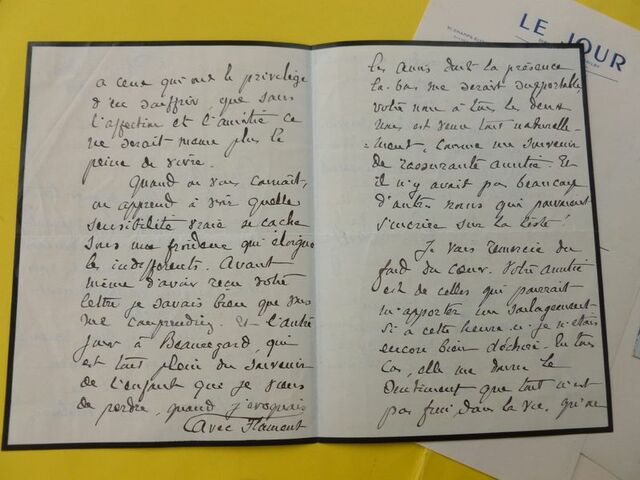 a ceux qui ont le privilège
d'en souffrir, que sans
l'affection et l'amitié ce
ne serait même plus la
peine de vivre.
Quand on vous connaît,
on apprend à voir quelle
sensibilité vraie se cache
sous une froideur qui éloigne
les indifférents. Avant
même d'avoir reçu votre
lettre je savais bien que vous
me comprendriez. Et l'autre
jour à Beauregard, qui
est tout plein du souvenir
de l'enfant que je viens
de perdre, quand j'évoquais
avec Flament
les amis dont la présence
là-bas me serait supportable,
votre nom à tous les deux
nous est venu tout naturelle-
ment, comme un souvenir
de rassurante amitié. Et
il n'y avait pas beaucoup
d'autres noms qui pouvaient
s'inscrire sur la liste!
Je vous remercie du
fond du cœur. Votre amitié
est de celles qui pourrait
m'apporter un soulagement
si à cette heure-ci je n'étais
encore bien déchiré. En tous
cas, elle me donne le
sentiment que tout n'est
pas fini dans la vie, qu'on
LE JOUR